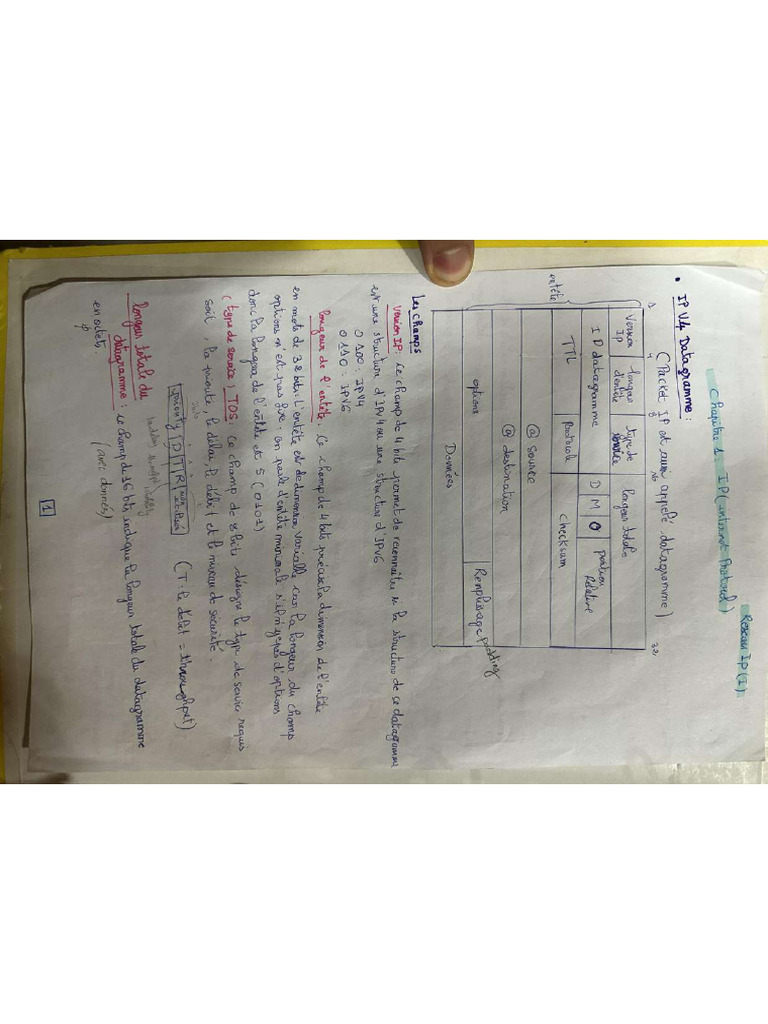 Réseau IP (1)
Chapitre 1 : IP (internet Protocol)
• IP V4 Datagramme :
(Packet IP est aussi appelé datagramme)
1 4 8 16 32
Version IP longueur d'entête type de service longueur totale
ID datagramme D M O position Relative
TTL Protocole checksum
@ source
@ destination
options Remplissage padding
Données
entête
Les champs
Version IP : Ce champ de 4 bits permet de reconnaître si la structure de ce datagramme
est une structure d'IPV4 ou une structure d'IPV6
0100 : IPV4
0110 : IPV6
longueur de l'entête : Ce champ de 4 bits précise la dimension de l'entête
en mots de 32 bits. L'entête est de dimension variable car la longueur du champ
options n'est pas fixe ; on parle d'entête minimale s'il n'y a pas d'options
donc la longueur de l'entête est 5 (0101)
(type de service) TOS : Ce champ de 8 bits désigne le type de service requis
soit, la priorité, le délai, le débit et le niveau de sécurité.
3 bits 1 1 1
priority D T R non utilisé (T : le débit = throughput)
longueur total du
datagramme : ce champ de 16 bits indique la longueur totale du datagramme
en octets. (avec données)
1